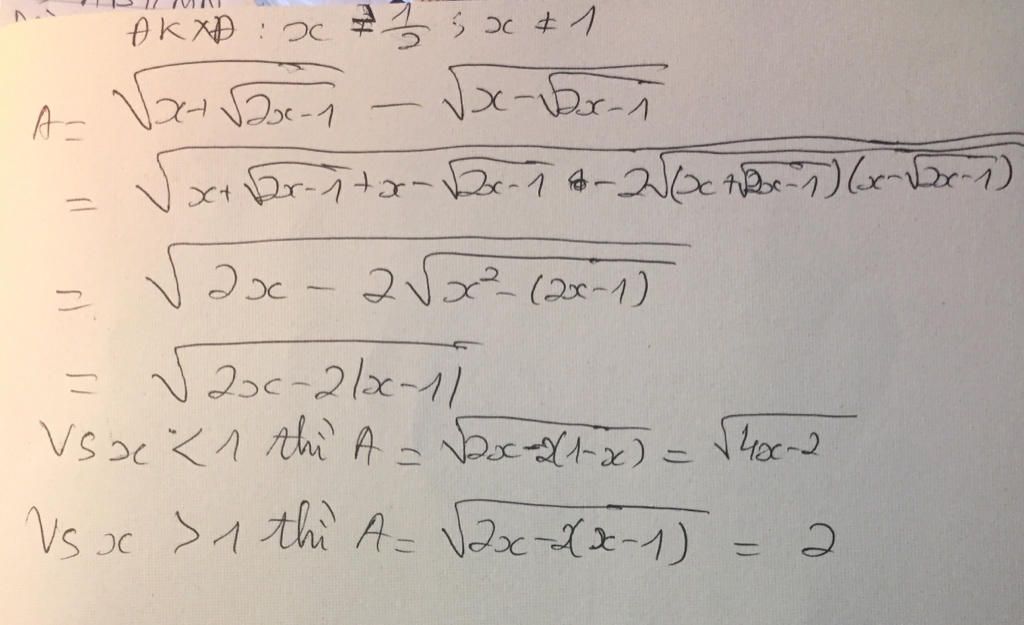 ĐKXĐ : x ≠ 1/2 ; x ≠ 1
A = √(x+√(2x-1)) - √(x-√(2x-1))
= √(x+√(2x-1)+x-√(2x-1) - 2√((x+√(2x-1))(x-√(2x-1))))
= √(2x - 2√(x²-(2x-1)))
= √(2x-2|x-1|)
Vs x < 1 thì A = √(2x-2(1-x)) = √(4x-2)
Vs x > 1 thì A = √(2x-2(x-1)) = 2